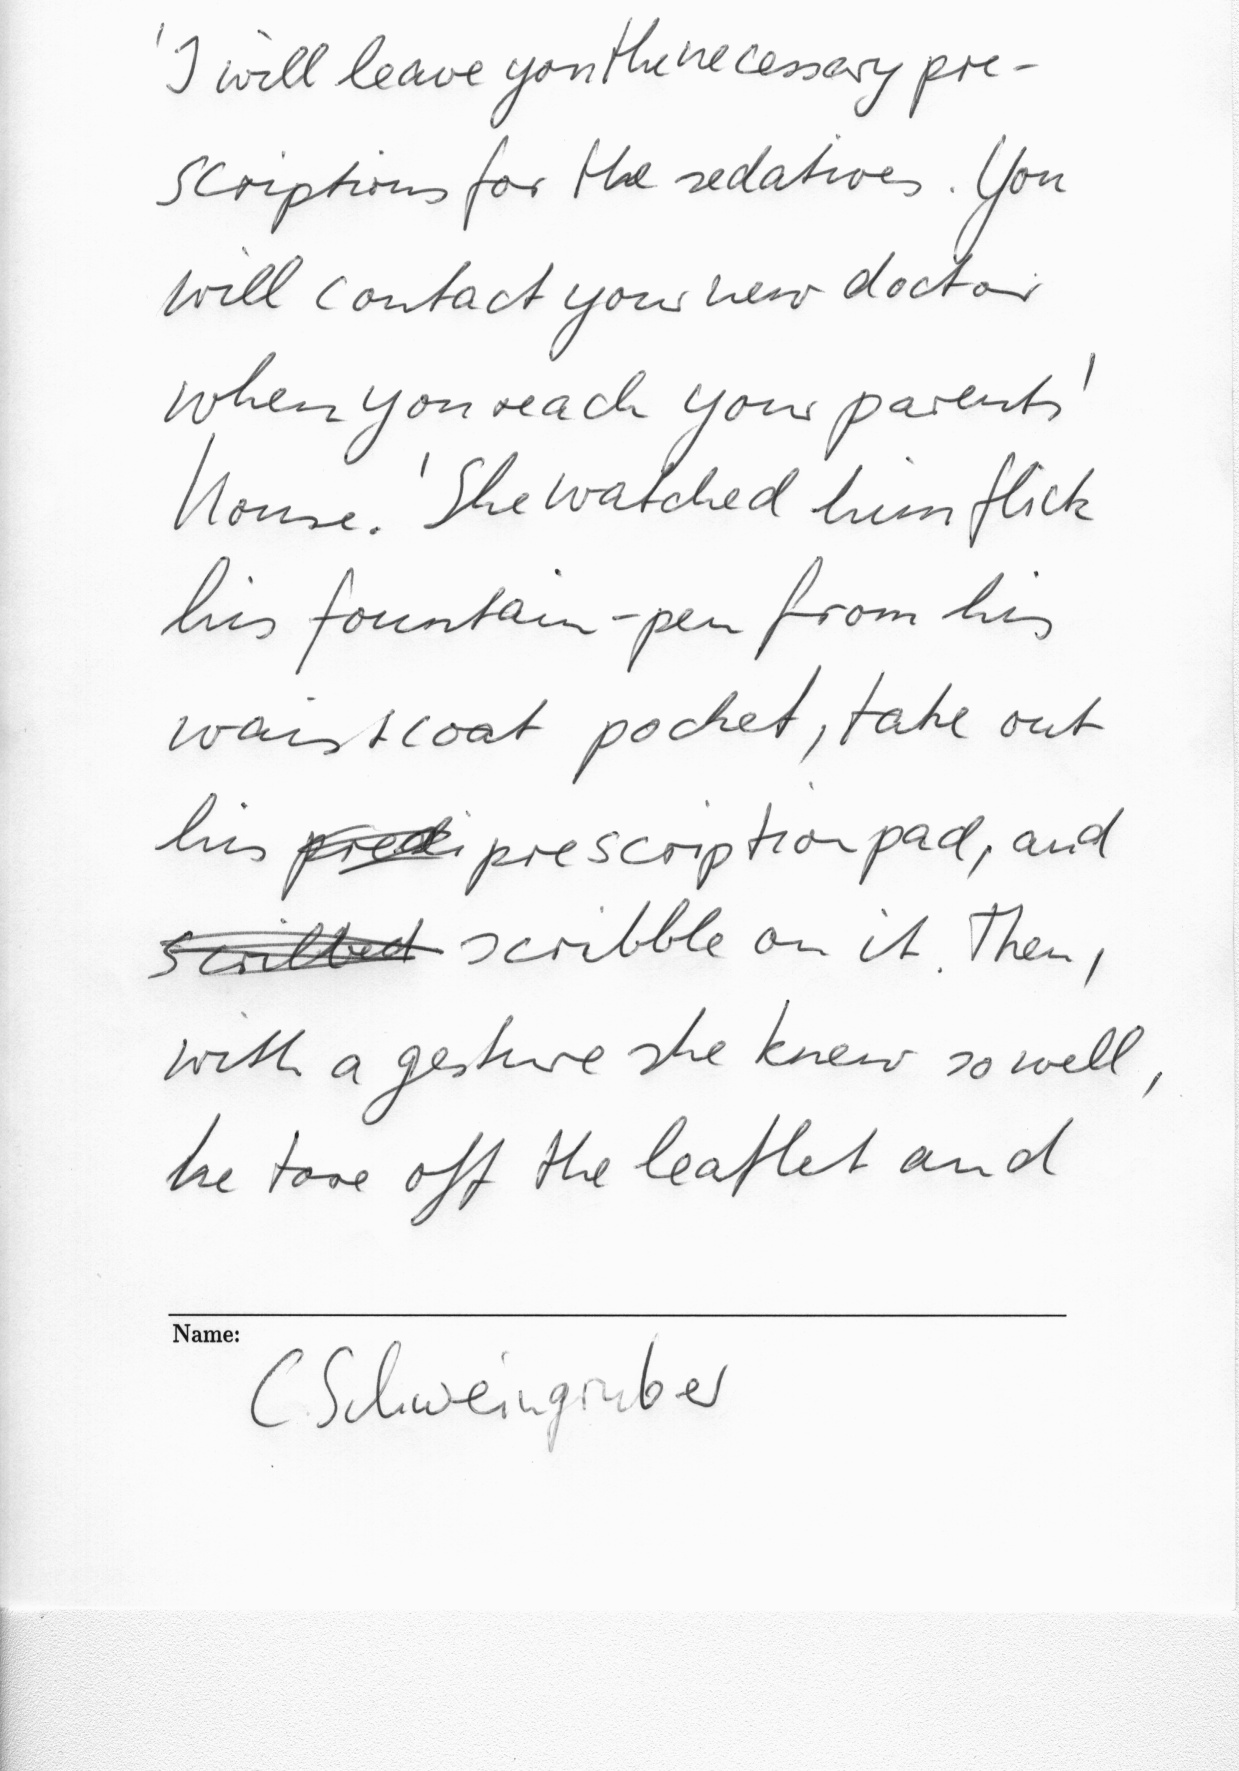 'I will leave you the necessary pre-
scriptions for the sedatives. You
will contact your new doctor
when you reach your parents'
house.' She watched him flick
his fountain-pen from his
waistcoat pocket, take out
his prescription pad, and
scribble on it. Then,
with a gesture she knew so well,
he tore off the leaflet and
Name:
C. Schweingruber